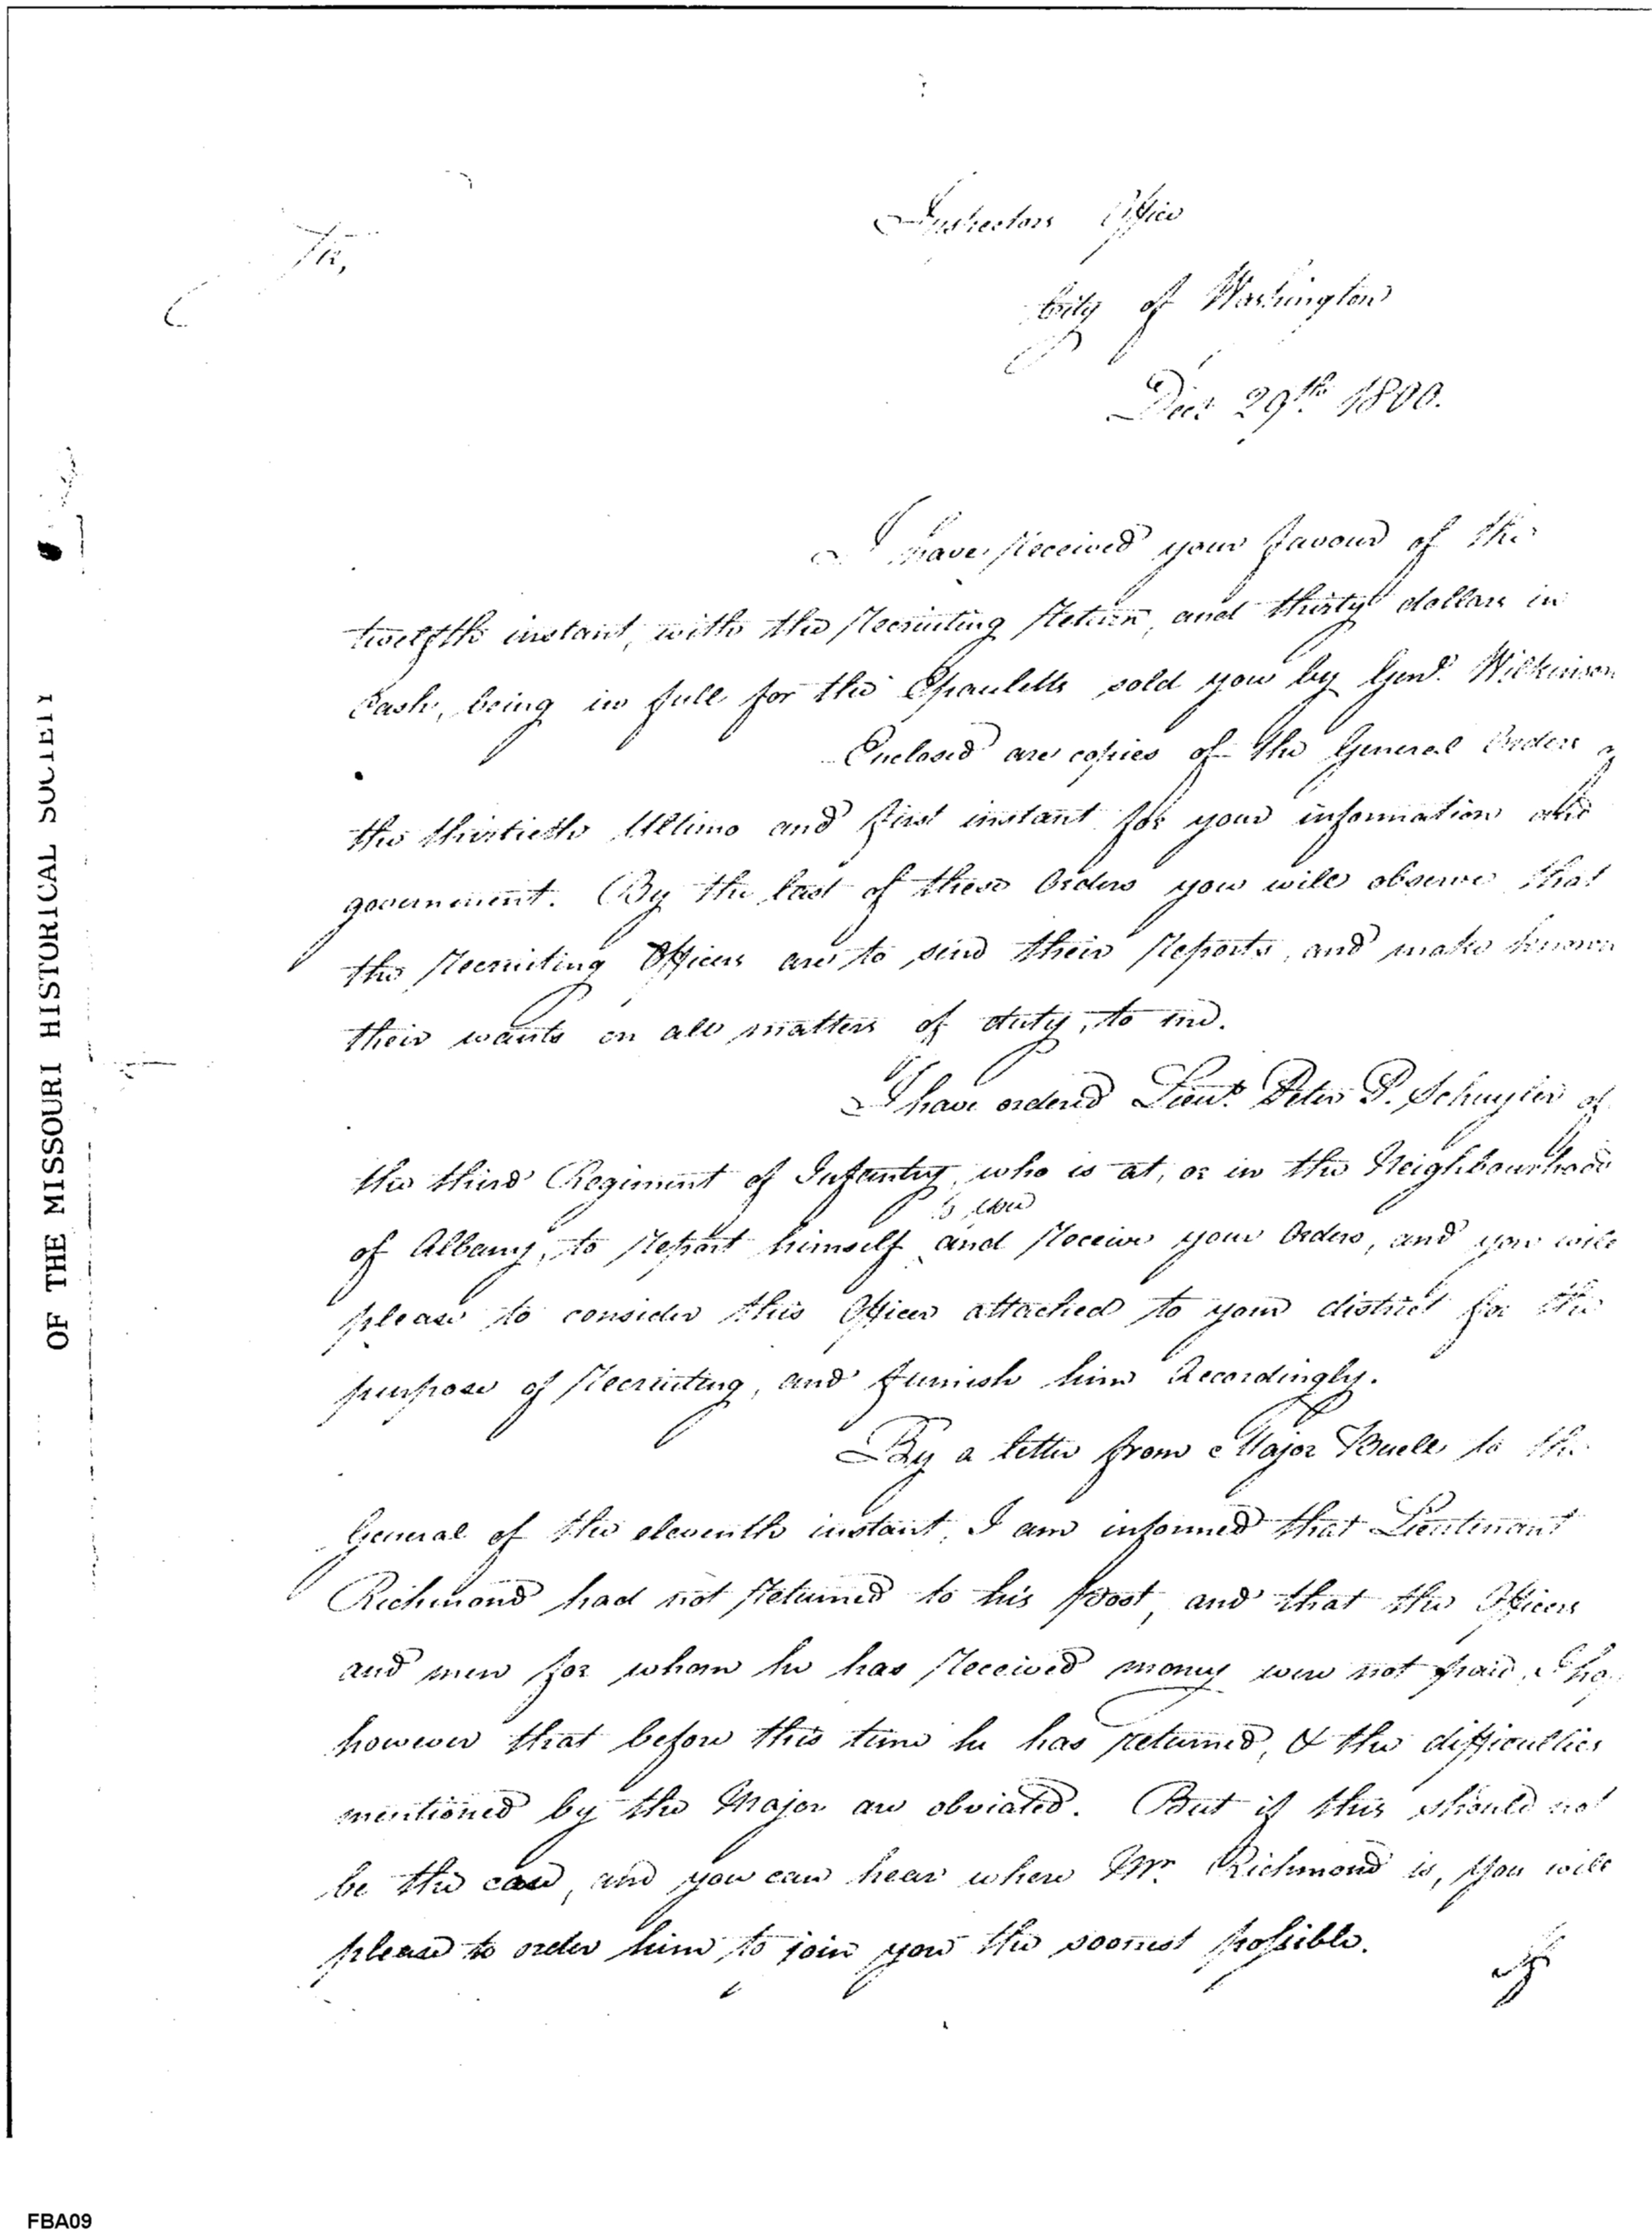 Inspectors Office
Sir,
City of Washington
Decr 29th 1800.
I have Received your favour of the
twelfth instant, with the Recruiting Return, and thirty dollars in
Cash, being in full for the Epauletts sold you by Genl. Wilkinson
Enclosed are copies of the General Orders
the thirtieth Ultimo and first instant for your information and
government. By the last of these Orders you will observe that
the Recruiting Officers are to send their Reports, and make known
their wants on all matters of duty, to me.
I have ordered Lieut. Peter P. Schuyler of
the third Regiment of Infantry, who is at, or in the Neighbourhood
to you
of Albany, to Report himself and Receive your Orders, and you will
please to consider this Officer attached to your district for the
purpose of Recruiting, and furnish him Accordingly.
By a letter from Major Buell to the
General of the eleventh instant, I am informed that Lieutenant
Richmond had not Returned to his post, and that the Officers
and men for whom he has Received money were not paid, I
however that before this time he has Returned, & the difficulties
mentioned by the Major are obviated. But if this should not
be the case, and you can hear where Mr. Richmond is, you will
please to order him to join you the soonest possible.
If
OF THE MISSOURI HISTORICAL SOCIETY
FBA09